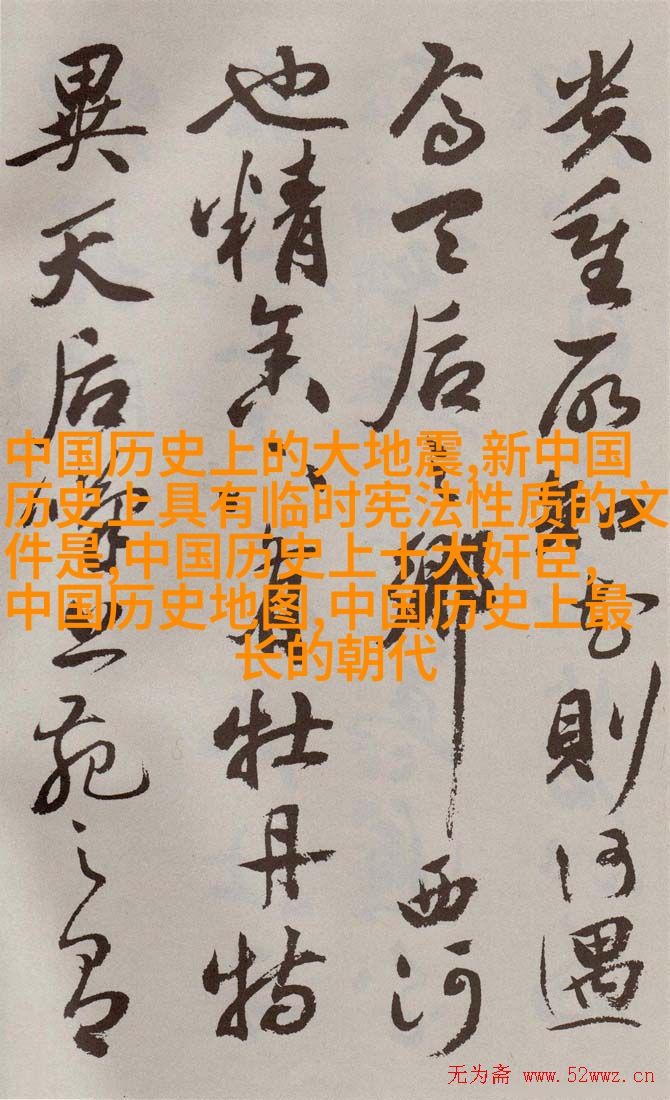 貴重所知花則何遇
焉天后之鄉西河
也精舍下有牡丹特
異天后嘆上苑之有
中国历史上的大地震,新中国
历史上具有临时宪法性质的文
件是,中国历史上十大奸臣,
中国历史地图,中国历史上最
长的朝代
无为斋 www.52wwz.cn